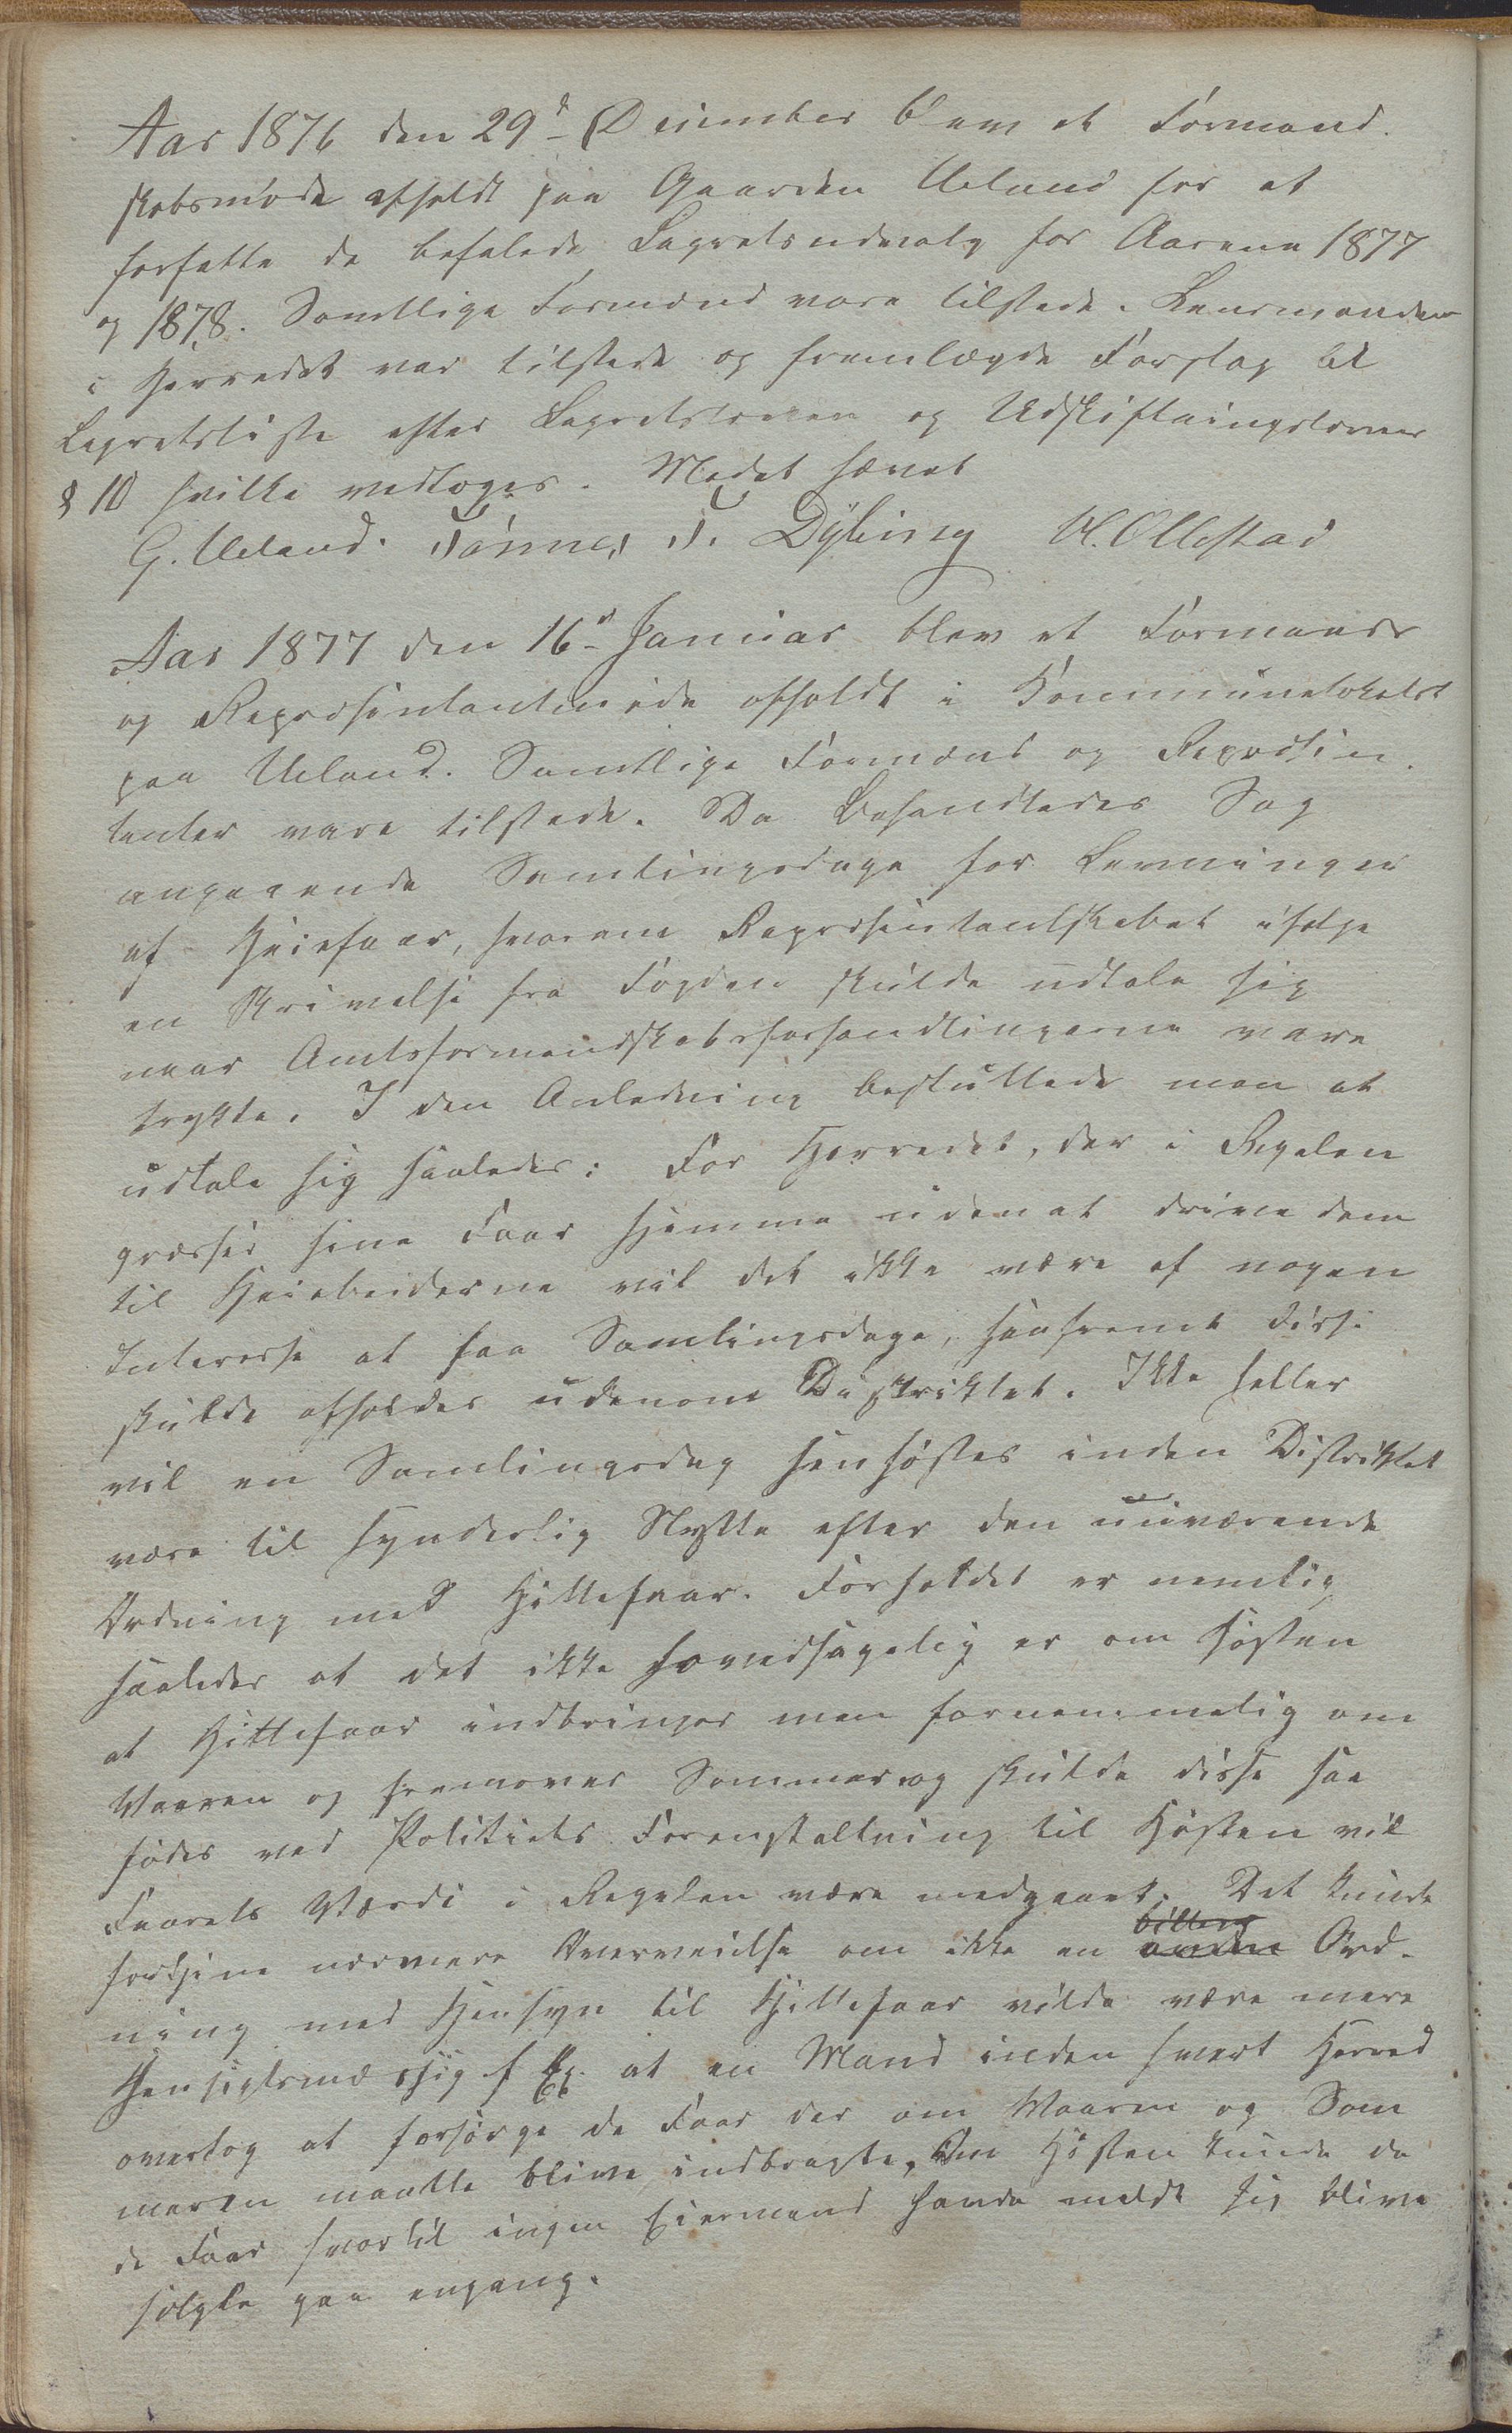 Aar 1876 den 29d December blev et Formand.
skabsmøde afholdt paa Gaarden Ueland for at
forfatte de befalede Lagretsudvalg for Aarene 1877
og 1878. Samtlige Formænd vare tilstede. Lensmanden
i Herredet var tilstede og fremlagde Forslag til
Lagretsliste efter Lagretsloven og Udskiftningsloven
§ 10 hvilke vedtoges. Mødet hævet
G. Ueland. Tønnes T. Dybing H. Ollestad
Aar 1877 den 16d Januar blev et Formands
og Repræsentantmøde afholdt i Kommunelokalet
paa Ueland. Samtlige Formænd og Repræsen.
tanter vare tilstede. Da Behandledes Sag
angaaende Samlingsdage for Levninger
af Heiefaar, hvorom Repræsentantskabet ifølge
en Skrivelse fra Fogden skulde udtale sig
naar Amtsformandskabsforhandlingerne vare
trykte. I den Anledning besluttede man at
udtale sig saaledes: For Herredet, der i Regelen
græsser sine Faar hjemme uden at drive dem
til Heiebeiderne vil det ikke være af nogen
Interesse at faa Samlingsdage, saafremt disse
skulde afholdes udenom Distriktet. Ikke heller
vil en Samlingsdag henhøstes inden Distriktet
være til synderlig Nytte efter den nuværende
Ordning med Hittefaar. Forholdet er nemlig
saaledes at det ikke hovedsagelig er om Høsten
at Hittefaar indbringes men fornemmelig om
Vaaren og fremover Sommer og skulde disse saa
fødes ved Politiets Foranstaltning til Høsten vil
Faarets Værdi i Regelen være medgaaet. Det kunde
fortjene nærmere Overveielse om ikke en anden Ord-
ning med Hensyn til Hittefaar vilde være mere
Hensigtsmæssig f Ex. at en Mand inden hvert Herred
overtog at forsørge de Faar der om Vaaren og Som
meren maatte blive indbragte, Om Høsten kunde da
de Faar hvortil ingen Eiermand havde meldt sig blive
solgte paa engang.